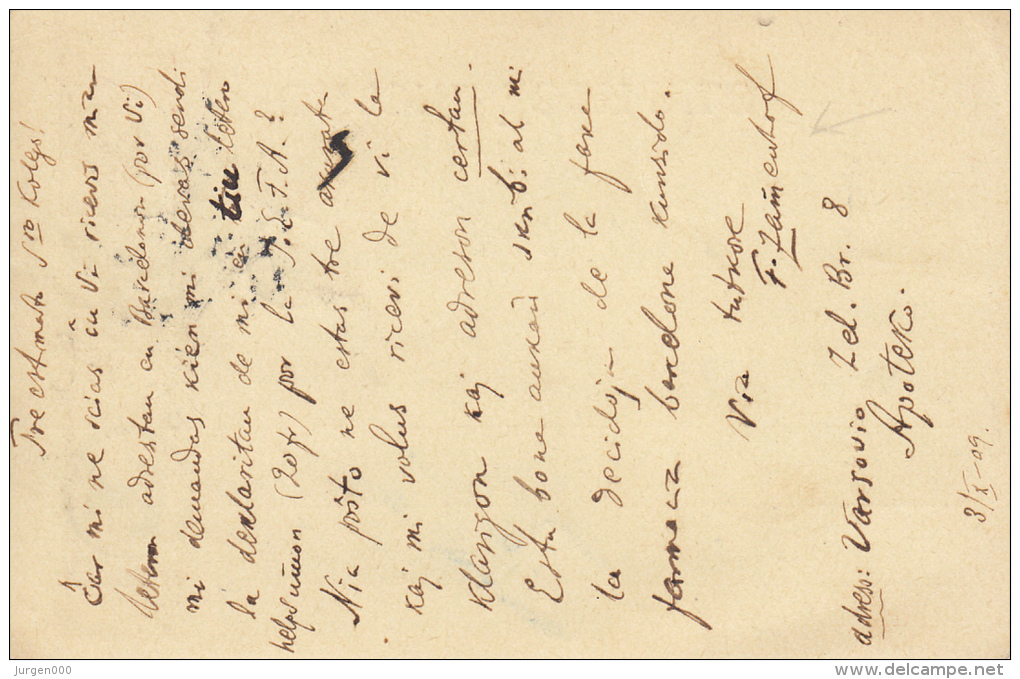 Tre estimata Sro Kolego!
Ĉar mi ne scias ĉu Vi ricevis mian
leteron adresitan en Barcelonon (por Vi)
mi demandas kien mi devas sendi
la deklaritan de mi ĉi tiu letero
helpsumon (20 fr) por la I.E.F.A.?
Nia poŝto ne estas tre
kaj mi volus ricevi de Vi la
klarigon kaj adreson certan.
Estu bona ankaŭ skribi al mi
la decidojn de la fare
farmacia barcelone kunsido.
Via tutkore
F. Zamenhof
adreso: Varsovio Zel. Br. 8
Apoteko.
3/X-09.
jurgen000
www.delcampe.net